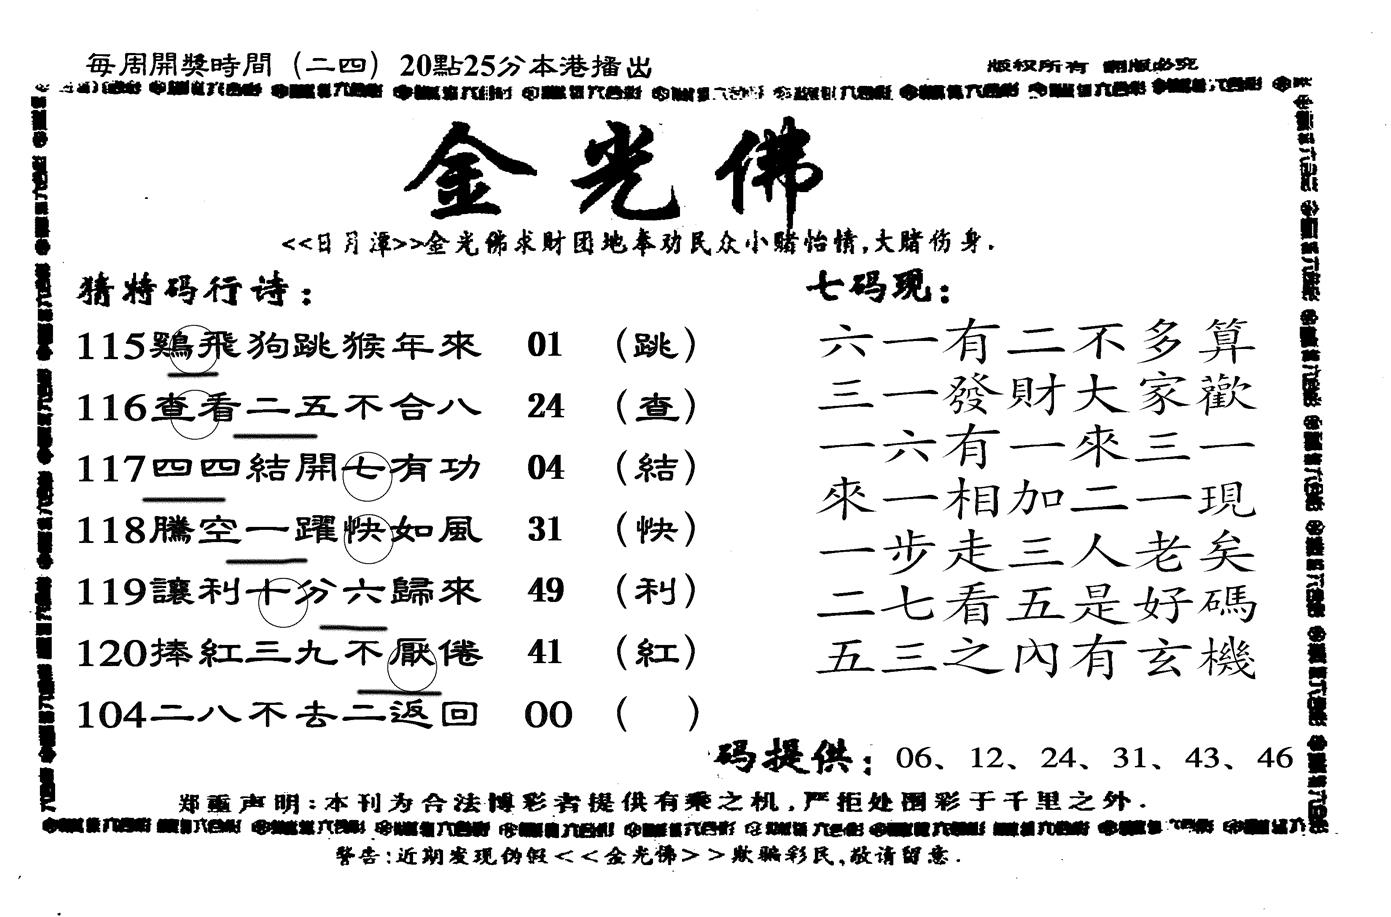 每周開獎時間（二四）20點25分本港播出
版权所有 翻版必究
金光佛
<<日月潭>>金光佛求财团地奉劝民众小赌怡情,大赌伤身.
猜特码行诗：
115鷄飛狗跳猴年來 01 （跳）
116查看二五不合八 24 （查）
117四四結開七有功 04 （結）
118騰空一躍怏如風 31 （怏）
119讓利十分六歸來 49 （利）
120捧紅三九不厭倦 41 （紅）
104二八不去二返回 00 （ ）
七码現：
六一有二不多算
三一發財大家歡
一六有一來三一
來一相加二一現
一步走三人老矣
二七看五是好碼
五三之內有玄機
码提供：06、12、24、31、43、46
郑重声明:本刊为合法博彩者提供有乘之机,严拒处围彩于千里之外.
警告:近期发现伪假<<金光佛>>欺骗彩民,敬请留意.